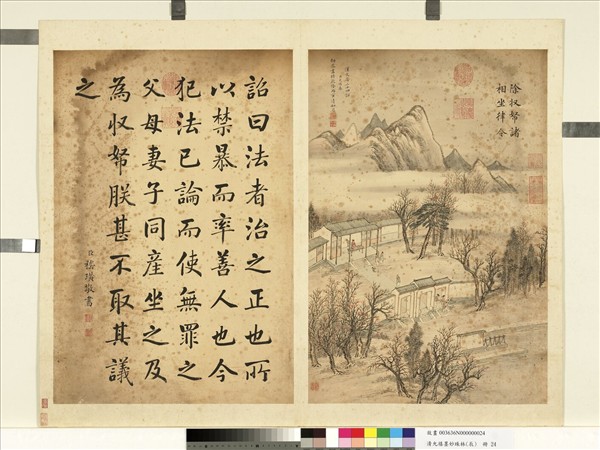 除収帑諸
相坐律令
詔曰法者治之正也所
以禁暴而率善人也今
犯法已論而使無罪之
父母妻子同產坐之及
為収帑朕甚不取其議
之
臣嵇璜敬書
故畫 003636N000000024
清允禧墨妙珠林 冊 24